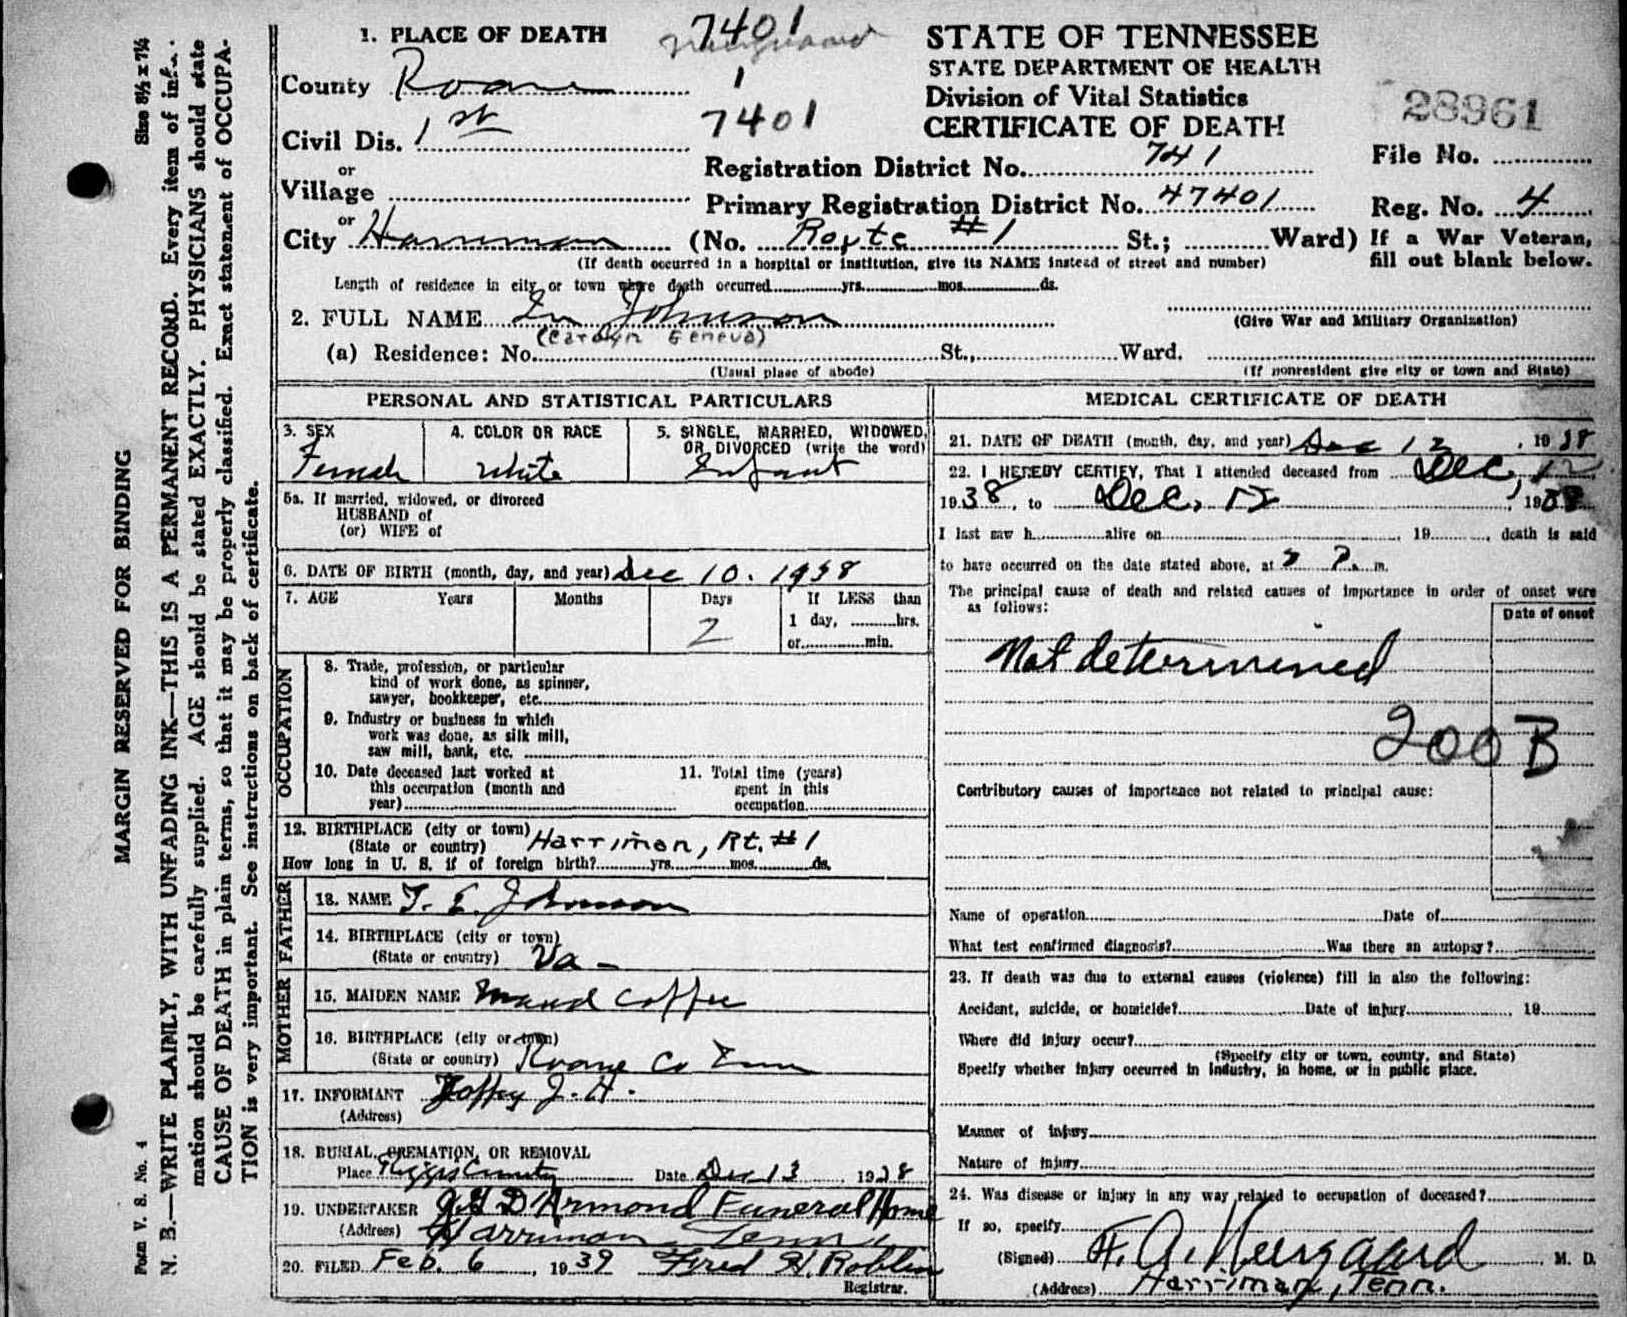 7401
1. PLACE OF DEATH
County Roane
1
Civil Dis. 1st
7401
or
Village
or
City Harriman (No. Royte #1 St.; Ward)
(If death occurred in a hospital or institution, give its NAME instead of street and number)
Length of residence in city or town where death occurred yrs. mos. ds.
STATE OF TENNESSEE
STATE DEPARTMENT OF HEALTH
Division of Vital Statistics
CERTIFICATE OF DEATH
Registration District No. 741
Primary Registration District No. 47401
28961
File No.
Reg. No. 4
If a War Veteran,
fill out blank below.
(Give War and Military Organization)
2. FULL NAME Johnson
(Carolyn Geneva)
(a) Residence: No. St., Ward.
(Usual place of abode) (If nonresident give city or town and State)
PERSONAL AND STATISTICAL PARTICULARS
3. SEX
Female
4. COLOR OR RACE
White
5. SINGLE, MARRIED, WIDOWED,
OR DIVORCED (write the word)
Infant
5a. If married, widowed, or divorced
HUSBAND of
(or) WIFE of
6. DATE OF BIRTH (month, day, and year) Dec 10. 1938
7. AGE Years Months Days If LESS than
2
1 day, hrs.
or min.
OCCUPATION
8. Trade, profession, or particular
kind of work done, as spinner,
sawyer, bookkeeper, etc.
9. Industry or business in which
work was done, as silk mill,
saw mill, bank, etc.
10. Date deceased last worked at
this occupation (month and
year)
11. Total time (years)
spent in this
occupation
12. BIRTHPLACE (city or town) Harriman, Rt. #1
(State or country)
How long in U. S. if of foreign birth? yrs. mos. ds.
FATHER
13. NAME T. E. Johnson
14. BIRTHPLACE (city or town)
(State or country) Va -
MOTHER
15. MAIDEN NAME Maud Coffee
16. BIRTHPLACE (city or town)
(State or country) Roane Co Tenn
17. INFORMANT J. H.
(Address)
18. BURIAL, CREMATION, OR REMOVAL
Place Date Dec 13 1938
19. UNDERTAKER D'Armond Funeral Home
(Address) Harriman Tenn
20. FILED Feb. 6, 1939 Fred H. Roblin
Registrar.
MEDICAL CERTIFICATE OF DEATH
21. DATE OF DEATH (month, day, and year) Dec 12, 1938
22. I HEREBY CERTIFY, That I attended deceased from Dec, 12
1938, to Dec. 12, 1938
I last saw h alive on , 19 , death is said
to have occurred on the date stated above, at P. m.
The principal cause of death and related causes of importance in order of onset were
as follows:
Date of onset
Not determined
200 B
Contributory causes of importance not related to principal cause:
Name of operation Date of
What test confirmed diagnosis? Was there an autopsy?
23. If death was due to external causes (violence) fill in also the following:
Accident, suicide, or homicide? Date of injury , 19
Where did injury occur?
(Specify city or town, county, and State)
Specify whether injury occurred in industry, in home, or in public place.
Manner of injury
Nature of injury
24. Was disease or injury in any way related to occupation of deceased?
If so, specify
(Signed) H. A. Neergaard, M. D.
(Address) Harriman, Tenn.
Size 8½ x 7¼
MARGIN RESERVED FOR BINDING
N. B.—WRITE PLAINLY, WITH UNFADING INK—THIS IS A PERMANENT RECORD. Every item of infor-
mation should be carefully supplied. AGE should be stated EXACTLY. PHYSICIANS should state
CAUSE OF DEATH in plain terms, so that it may be properly classified. Exact statement of OCCUPA-
TION is very important. See instructions on back of certificate.
Form V. S. No. 4